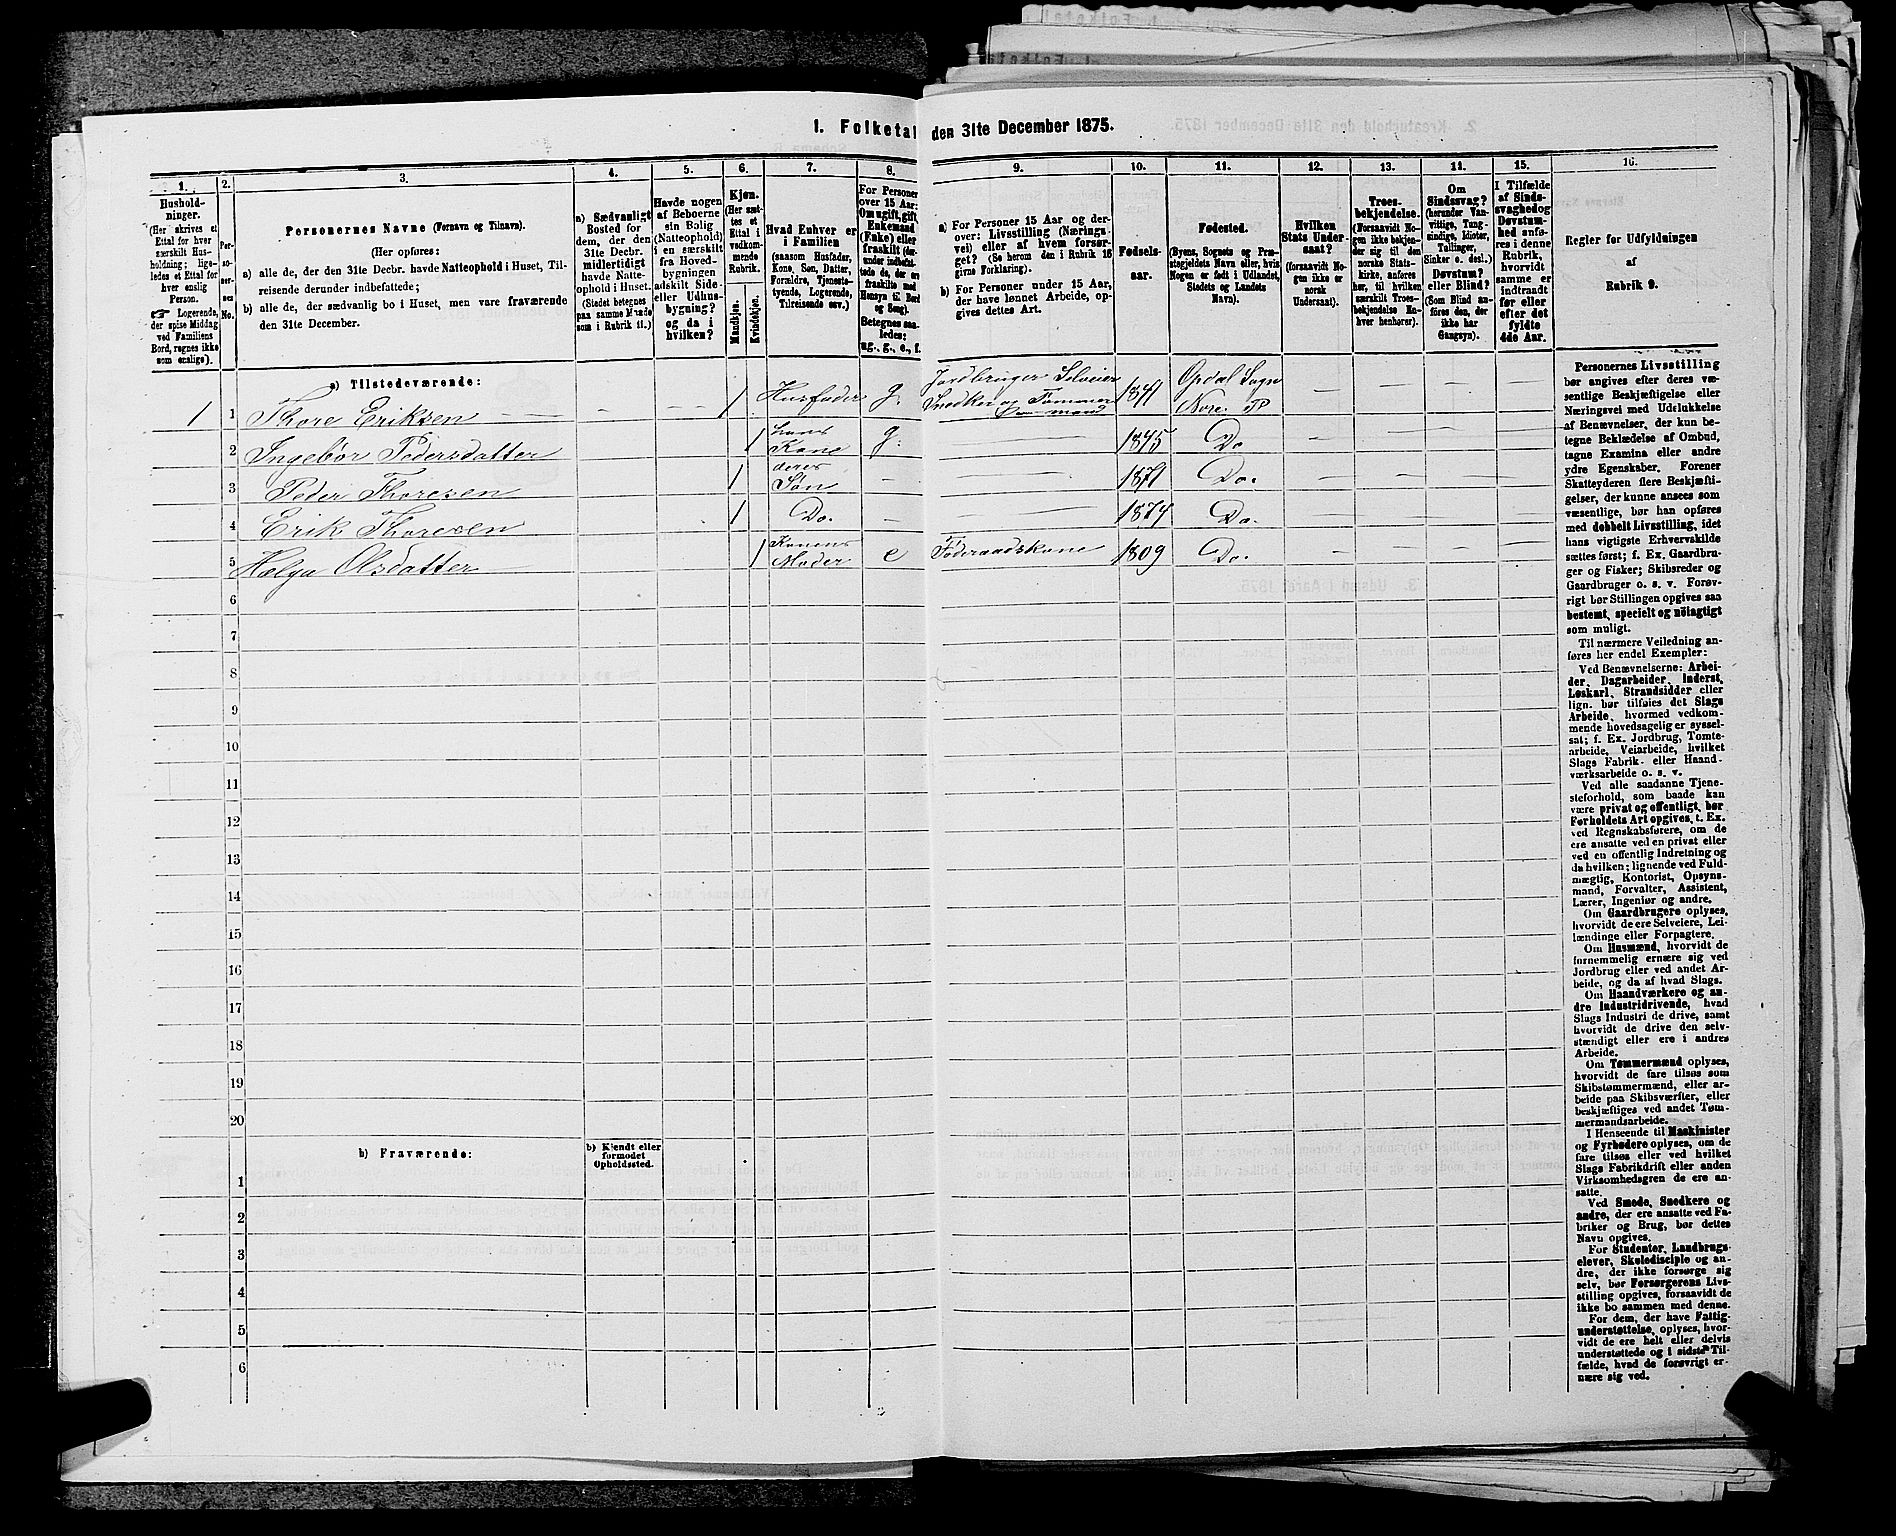 1. Folketal den 31te December 1875.
1. 2. 3. 4. 5. 6. 7. 8. 9. 10. 11. 12. 13. 14. 15. 16.
Hushold-
ninger.
(Her skrives et
Ettal for hver
særskilt Hus-
holdning; lige-
ledes et Ettal for
hver enslig
Person.
☞ Logerende,
der spise Middag
ved Familiens
Bord, regnes ikke
som enslige).
Per-
so-
ner-
nes
No.
Personernes Navne (Fornavn og Tilnavn).
(Her opføres:
a) alle de, der den 31te Decbr. havde Natteophold i Huset, Til-
reisende derunder indbefattede;
b) alle de, der sædvanlig bo i Huset, men vare fraværende
den 31te December.
a) Sædvanligt
Bosted for
dem, der den
31te Decbr.
midlertidigt
havde Natte-
ophold i Huset.
(Stedet betegnes
paa samme Maade
som i Rubrik 11.)
Havde nogen
af Beboerne
sin Bolig
(Natteophold)
i en særskilt
fra Hoved-
bygningen
adskilt Side-
eller Udhus-
bygning?
og da i
hvilken?
Kjøn.
(Her sæt-
tes et
Ettal i
vedkom-
mende
Rubrik.
Mandkjøn.
Kvindekjøn.
Hvad Enhver er
i Familien
(saasom Husfader,
Kone, Søn, Datter,
Forældre, Tjeneste-
tyende, Logerende,
Tilreisende osv.)
For Personer
over 15 Aar:
Om ugift, gift,
Enkemand
(Enke) eller
fraskilt (der-
under indbefat-
tede de, der ere
fraskilte med
Hensyn til Bord
og Seng).
Betegnes saa-
ledes:
ug., g., e., f.
a) For Personer 15 Aar og der-
over: Livsstilling (Næringsvei)
eller af hvem forsør-
get? (Se herom den i Rubrik 16
givne Forklaring).
b) For Personer under 15 Aar,
der have lønnet Arbeide, op-
gives dettes Art.
Fødsels-
aar.
Fødested.
(Byens, Sognets og Præ-
stegjeldets Navn eller, hvis
Nogen er født i Udlandet,
Stedets og Landets
Navn).
Hvilken
Stats Under-
saat?
(forsaavidt No-
gen ikke er
norsk
Undersaat).
Troes-
bekjendelse.
(Forsaavidt No-
gen ikke bekjen-
der sig til den
norske Stats-
kirke, anføres
her, til hvilken
særskilt Troes-
bekjendelse En-
hver henhører).
Om
Sindssvag?
(herunder Van-
vittige, Tung-
sindige, Idioter,
Tullinger,
Sinker o. desl.)
Døvstum?
eller Blind?
(Som Blind an-
føres den, der
ikke har
Gangsyn).
I Tilfælde
af Sinds-
svaghed og
Døvstum-
hed anfø-
res i denne
Rubrik,
hvorvidt
samme er
indtraadt
før eller
efter det
fyldte
4de Aar.
Regler for Udfyldningen
af
Rubrik 9.
a) Tilstedeværende:
1 1 Thore Eriksen — — — 1 Husfader g. Jordbruger Selveier Snedker og Tømmermand 1841 Opdal Sogn Nore P — — — —
2 Ingebør Pedersdatter 1 hans Kone g. — 1845 Do — — — —
3 Peder Thoresen 1 deres Søn — — 1871 Do. — — — —
4 Erik Thoresen 1 Do. — — 1874 Do. — — — —
5 Helga Olsdatter 1 Konens Moder e Føderaadskone 1809 Do. — — — —
6
7
8
9
10
11
12
13
14
15
16
17
18
19
20
b) Fraværende:
b) Kjendt eller
formodet
Opholdssted.
1
2
3
4
5
6
Personernes Livsstilling
bør angives efter deres væ-
sentlige Beskjæftigelse eller
Næringsvei med Udelukkelse
af Benævnelser, der kun be-
tegne Beklædelse af Ombud,
tagne Examina eller andre
ydre Egenskaber. Forener
Skatteyderen flere Beskjæfti-
gelser, der kunne ansees som
væsentlige, bør han opføres
med dobbelt Livsstilling, idet
hans vigtigste Erhvervskilde
sættes først; f. Ex. Gaardbru-
ger og Fisker; Skibsreder og
Gaardbruger o. s. v. Forøv-
rigt bør Stillingen opgives saa
bestemt, specielt og nöiagtigt
som muligt.
Til nærmere Veiledning an-
føres her endel Exempler:
Ved Benævnelserne: Arbei-
der, Dagarbeider, Inderst,
Løskarl, Strandsidder eller
lign. bør tilføies det Slags
Arbeide, hvormed vedkom-
mende hovedsagelig er syssel-
sat; f. Ex. Jordbrug, Tomte-
arbeide, Veiarbeide, hvilket
Slags Fabrik- eller Haand-
værksarbeide o. s. v.
Ved alle saadanne Tjene-
steforhold, som baade kan
være privat og offentligt, bør
Forholdets Art opgives, f. Ex.
ved Regnskabsførere, om de
ere ansatte ved en privat eller
ved en offentlig Indretning og
da hvilken; lignende ved Fuld-
mægtig, Kontorist, Opsyns-
mand, Forvalter, Assistent,
Lærer, Ingeniør og andre.
Om Gaardbrugere oplyses,
hvorvidt de ere Selveiere, Lei-
lændinge eller Forpagtere.
Om Husmænd, hvorvidt de
fornemmelig ernære sig ved
Jordbrug eller ved andet Ar-
beide, og da af hvad Slags.
Om Haandværkere og an-
dre Industridrivende, hvad
Slags Industri de drive, samt
hvorvidt de drive den selv-
stændigt eller ere i andres
Arbeide.
Om Tømmermænd oplyses,
hvorvidt de fare tilsøs som
Skibstømmermænd, eller ar-
beide paa Skibsværfter, eller
beskjæftiges ved andet Tøm-
mermandsarbeide.
I Henseende til Maskinister
og Fyrbødere oplyses, om de
fare tilsøs eller ved hvilket
Slags Fabrikdrift eller anden
Virksomhedsgren de ere an-
satte.
Ved Smede, Snedkere og
andre, der ere ansatte ved Fa-
briker og Brug, bør dettes
Navn opgives.
For Studenter, Landbrugs-
elever, Skoledisciple og an-
dre, der ikke forsørge sig
selv, bør Forsørgerens Livs-
stilling opgives, forsaavidt de
ikke bo sammen med denne.
For dem, der have Fattig-
understøttelse, oplyses, hvor-
vidt de ere helt eller delvis
understøttede og i sidste Til-
fælde, hvad de forøvrigt er-
nære sig ved.